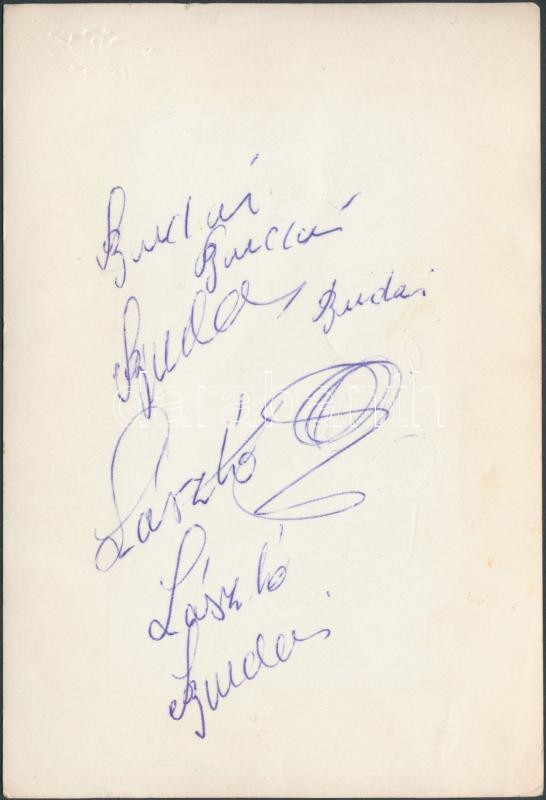 Budai
Budai
Budai
Budai
darabanth
László
László
Budai